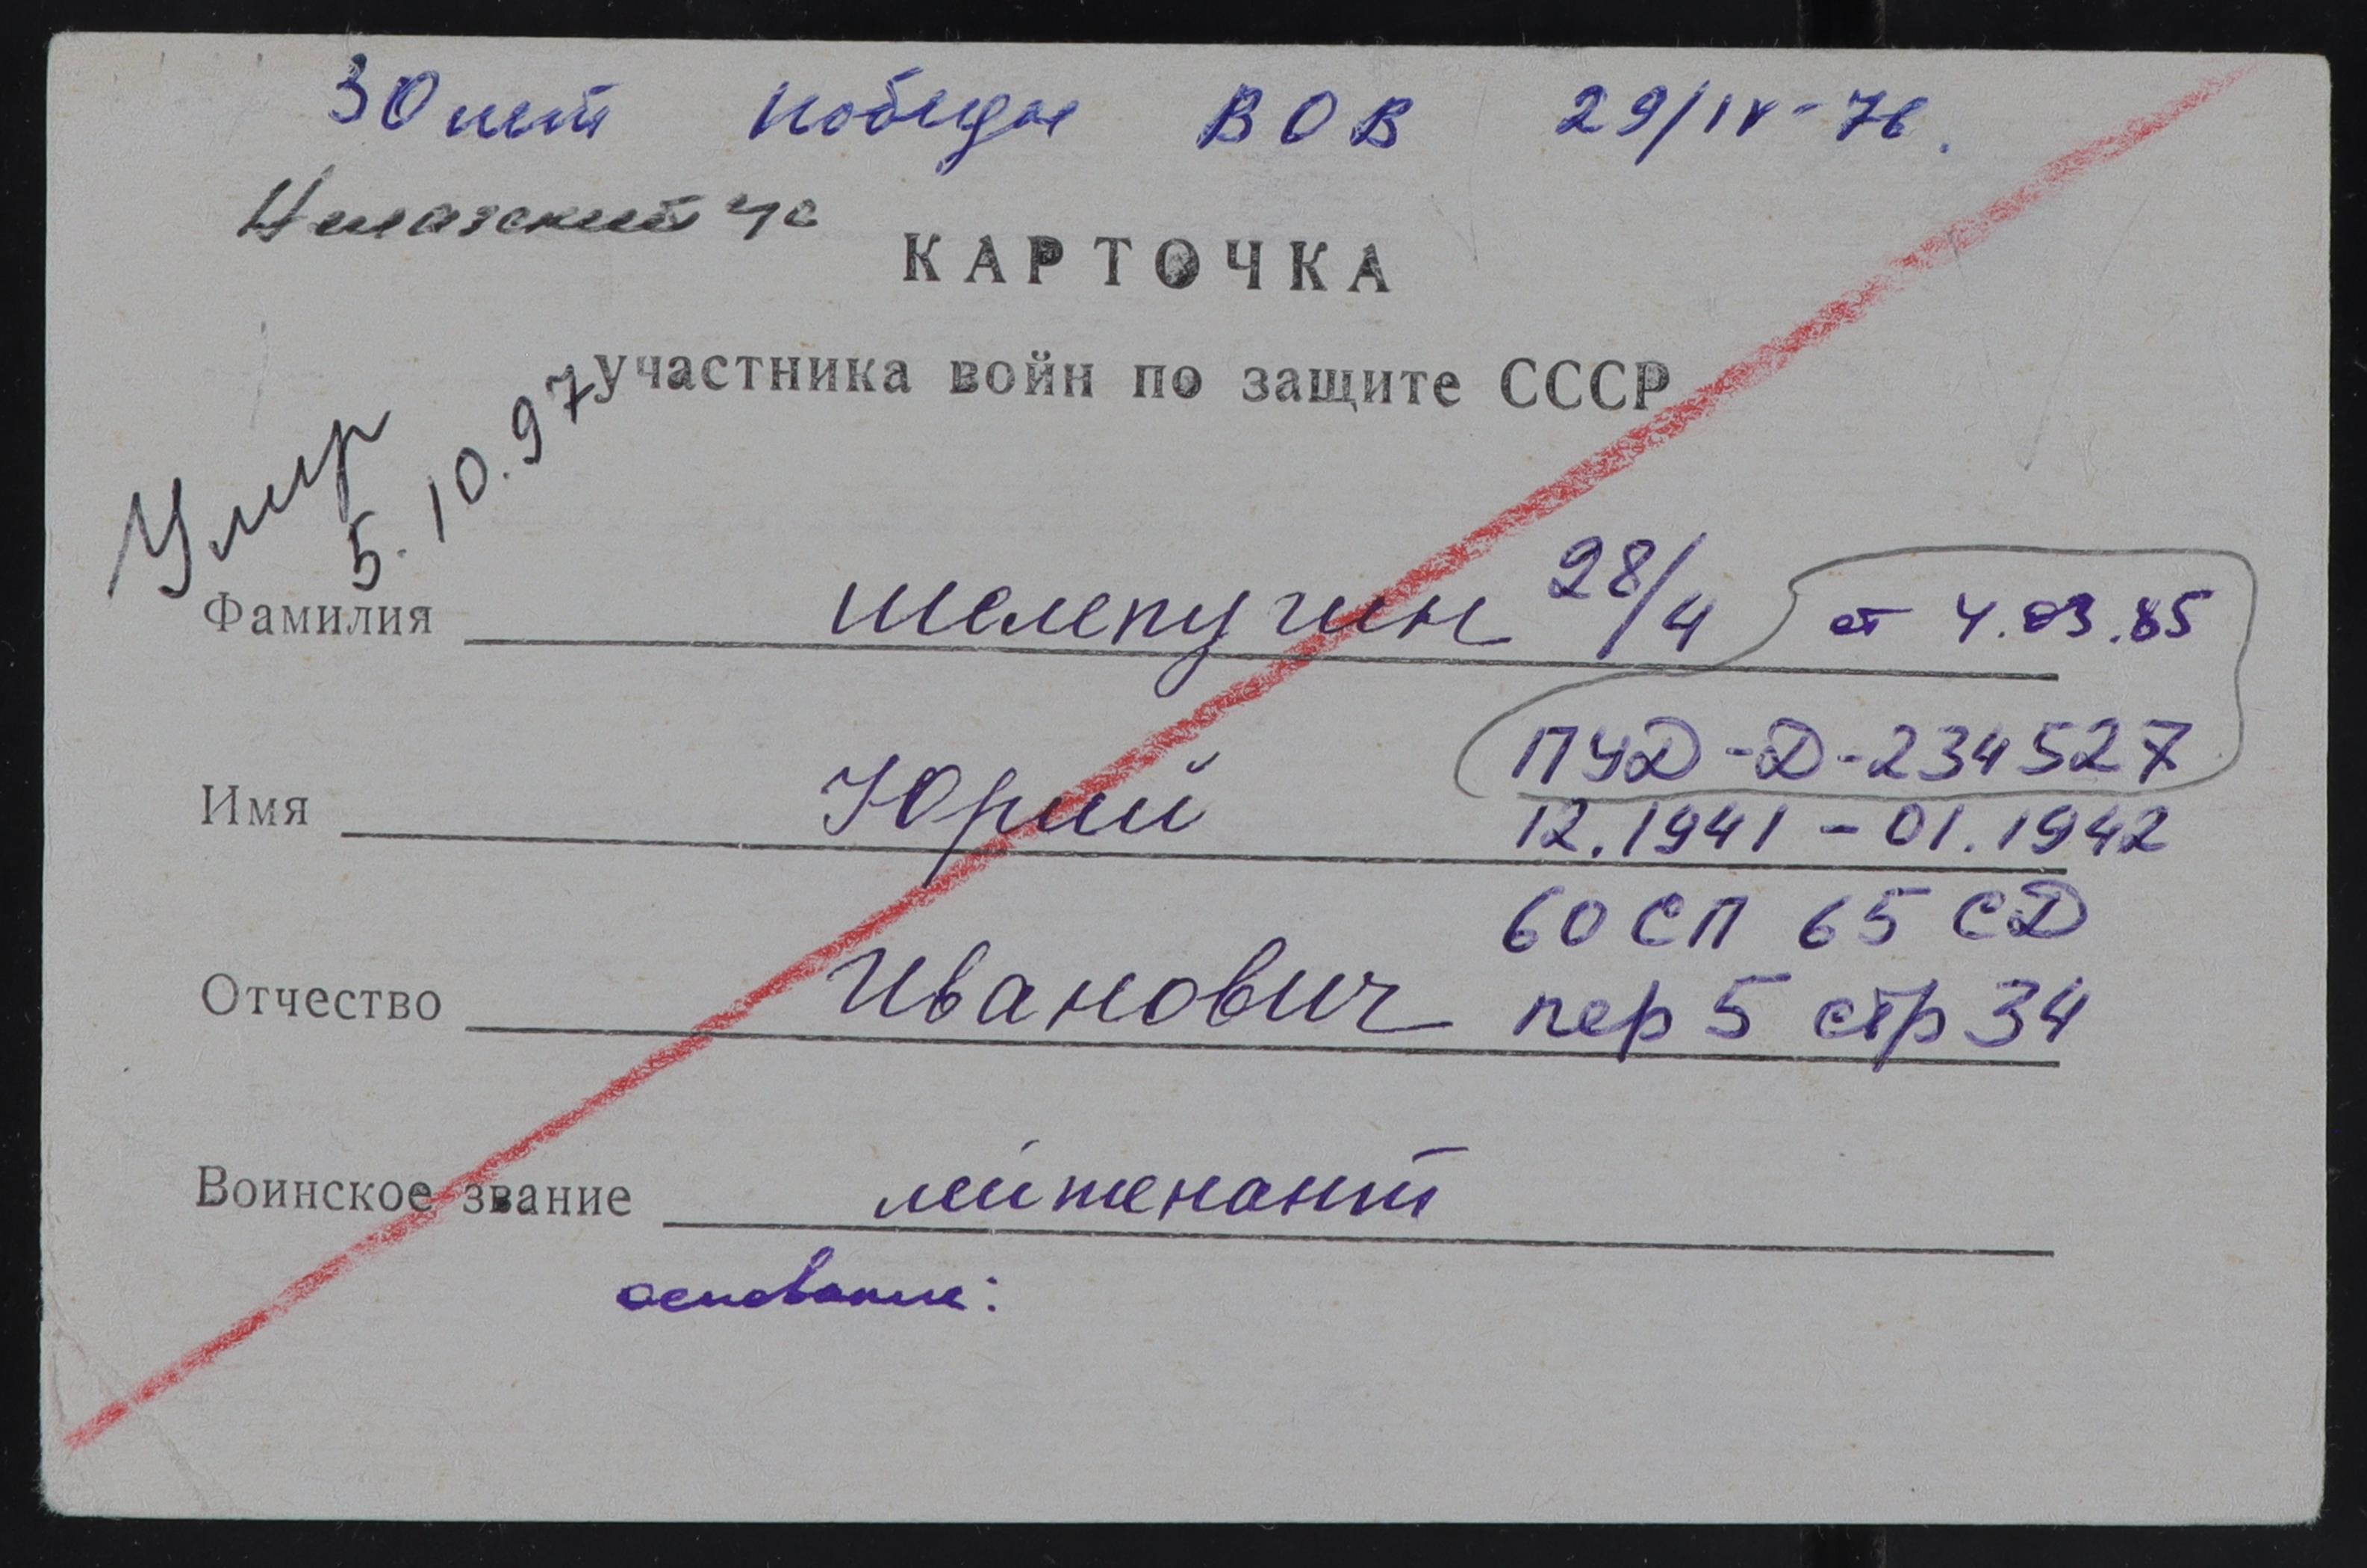 30 лет Победы ВОВ 29/IV-76.
Чиназский ЧС
КАРТОЧКА
участника войн по защите СССР
Умер
5.10.97
Фамилия Шелепугин 28/4 от 4.03.85
ПУД-Д-234527
Имя Юрий 12.1941-01.1942
60 СП 65 СД
Отчество Иванович пер 5 стр 34
Воинское звание лейтенант
основание: